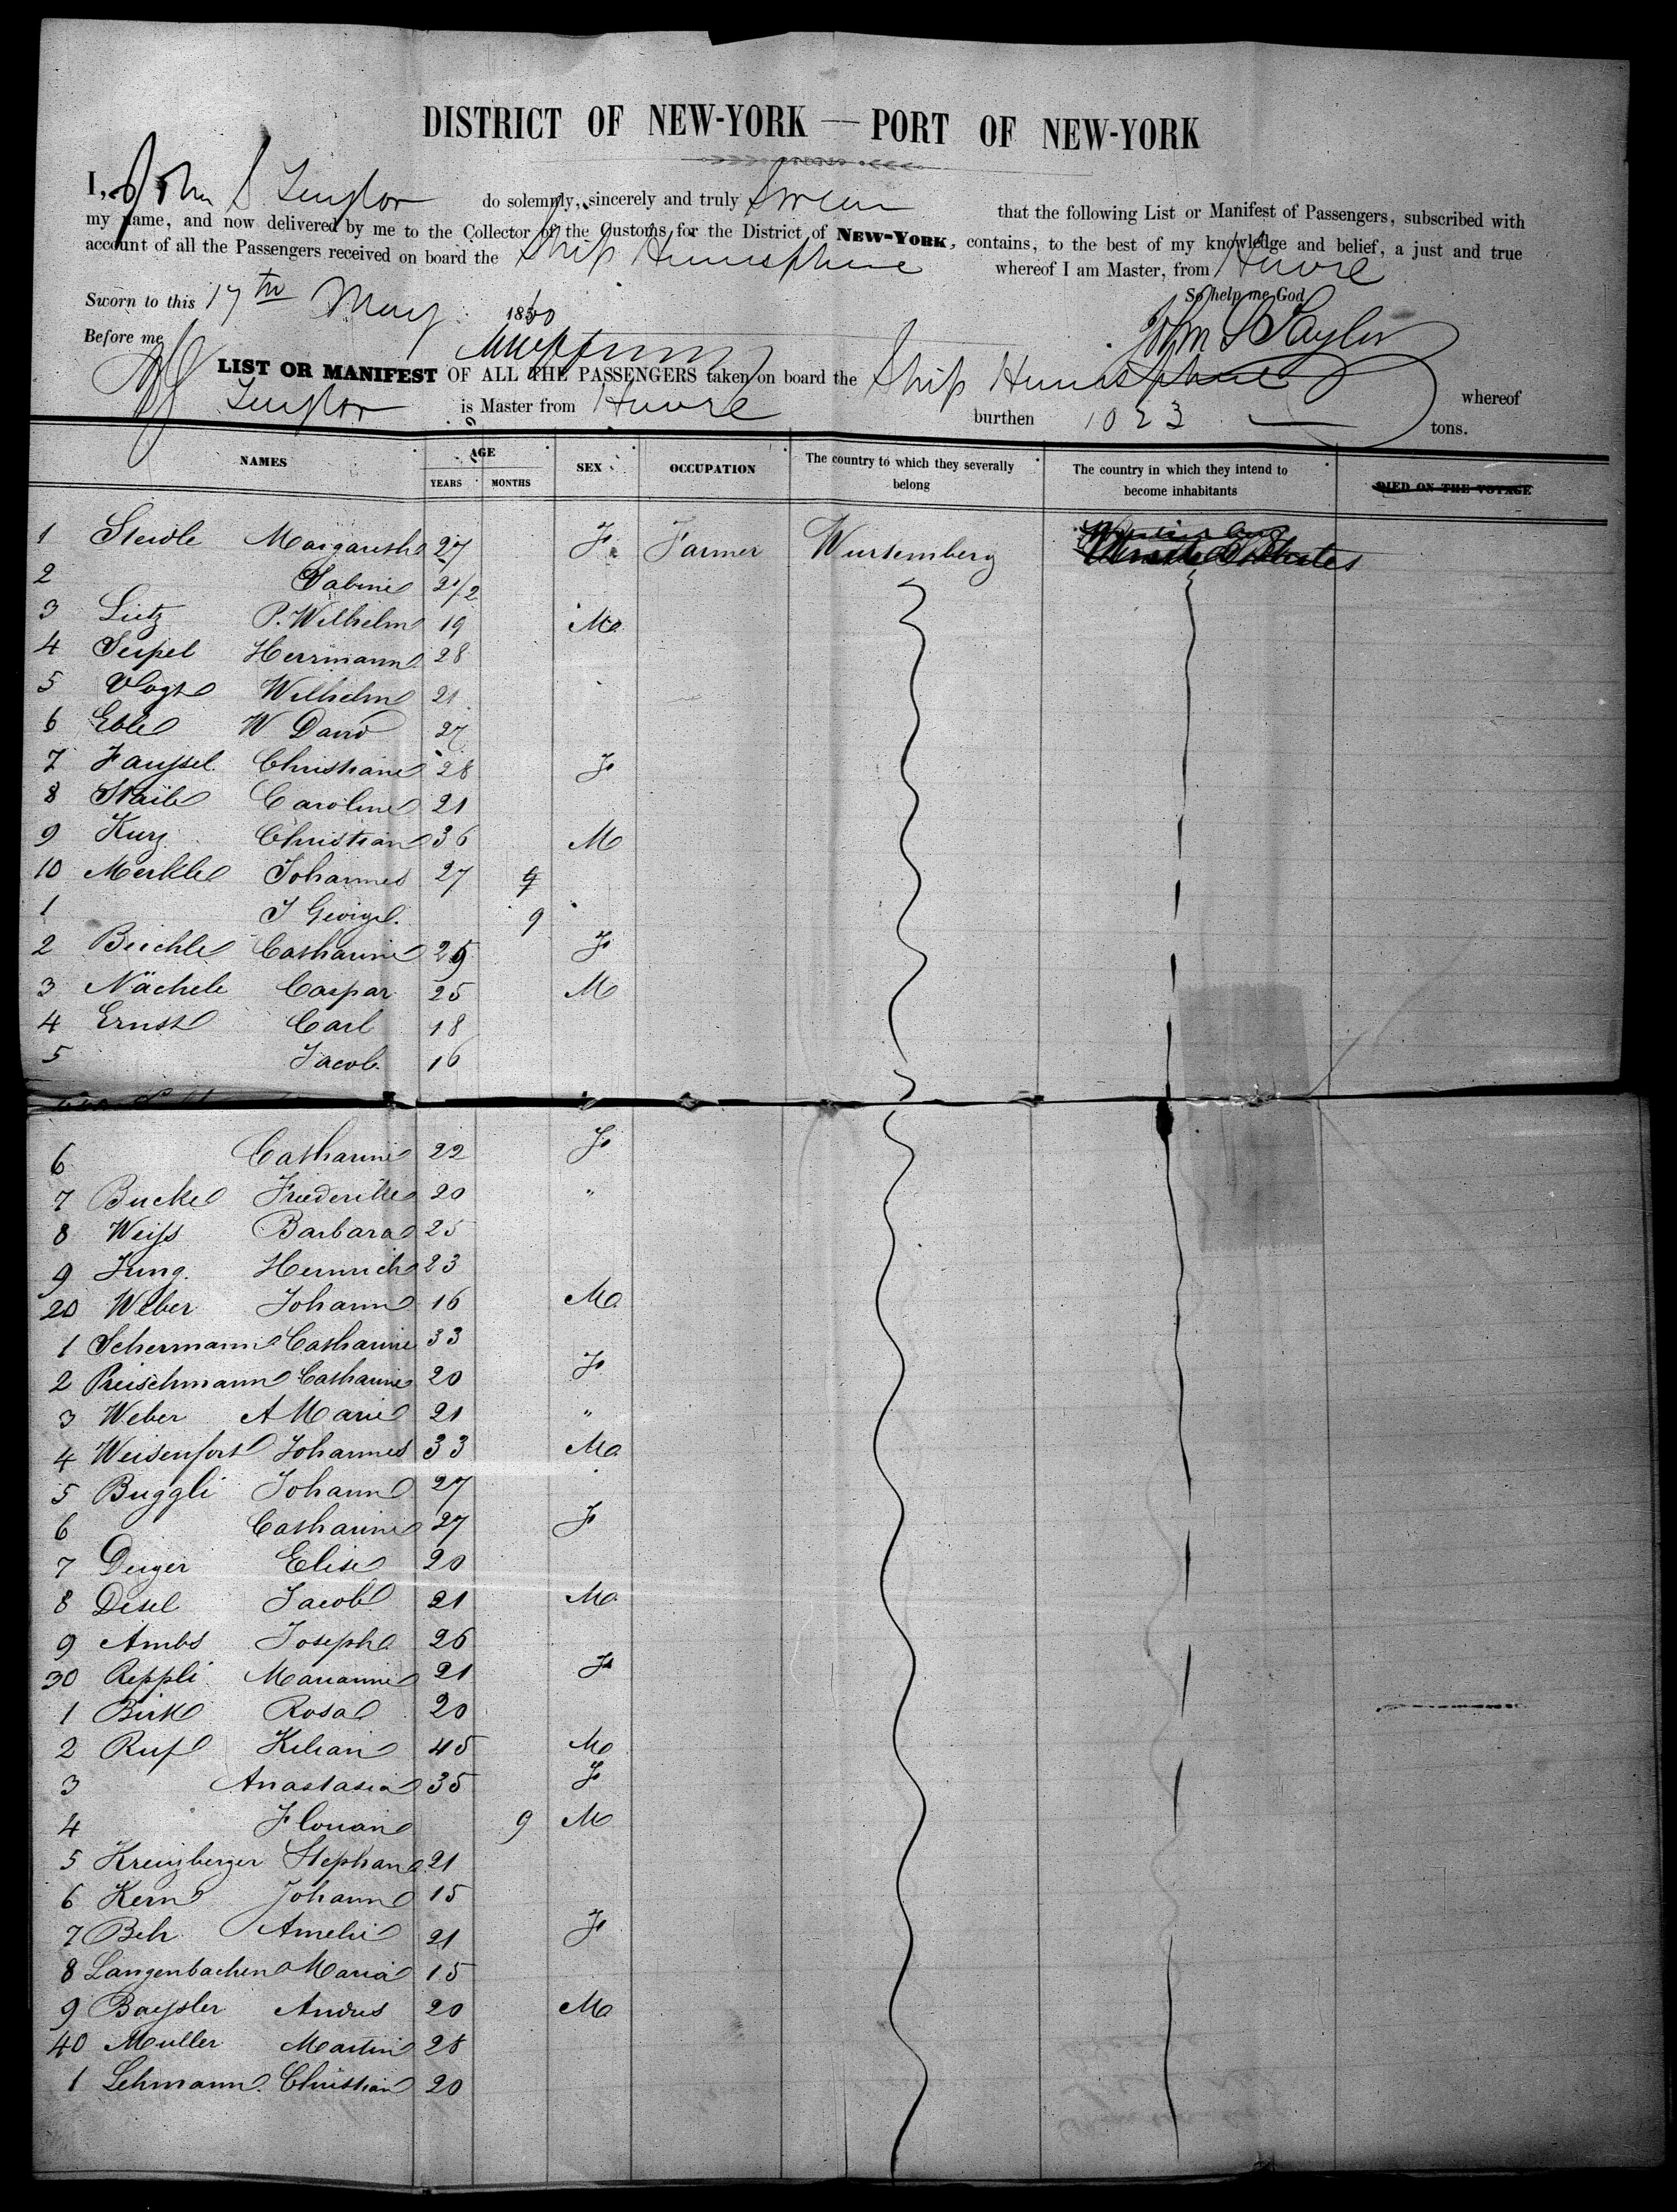 DISTRICT OF NEW-YORK — PORT OF NEW-YORK
I, John S Taylor do solemnly, sincerely and truly Swear that the following List or Manifest of Passengers, subscribed with
my name, and now delivered by me to the Collector of the Customs for the District of NEW-YORK, contains, to the best of my knowledge and belief, a just and true
account of all the Passengers received on board the Ship Hemisphere whereof I am Master, from Havre
So help me God
Sworn to this 17th May 1850
John S Taylor
Before me
LIST OR MANIFEST OF ALL THE PASSENGERS taken on board the Ship Hemisphere whereof
Taylor is Master from Havre burthen 1023 tons.
NAMES AGE SEX OCCUPATION The country to which they severally belong The country in which they intend to become inhabitants DIED ON THE VOYAGE
YEARS MONTHS
1 Steidle Margareth 27 F Farmer Wurtemberg United States
2 Sabine 2 1/2
3 Lietz P. Wilhelm 19 M
4 Seipel Herrmann 28
5 Vogt Wilhelm 21
6 Eble W David 27
7 Faussel Christiane 28 F
8 Staible Caroline 21
9 Kurz Christian 36 M
10 Merkle Johannes 27
1 J George 9
2 Beichle Catharine 29 F
3 Nächele Caspar 25 M
4 Ernst Carl 18
5 Jacob 16
6 Catharine 22 F
7 Buckel Friederike 20 "
8 Weiss Barbara 25
9 Jung Heinrich 23
20 Weber Johann 16 M
1 Schermann Catharine 33
2 Preischmann Catharine 20 F
3 Weber A Marie 21 "
4 Weisenfort Johannes 33 M
5 Buggli Johann 27
6 Catharine 27 F
7 Deiger Elise 20
8 Disel Jacob 21 M
9 Ambs Joseph 26
30 Reppli Marianne 21 F
1 Birk Rosa 20
2 Ruf Kilian 45 M
3 Anastasia 35 F
4 Florian 9 M
5 Kreuzberger Stephan 21
6 Kern Johann 15
7 Beh Amelie 21 F
8 Langenbachen Maria 15
9 Baysler Andres 20 M
40 Muller Martin 28
1 Lehmann Christian 20